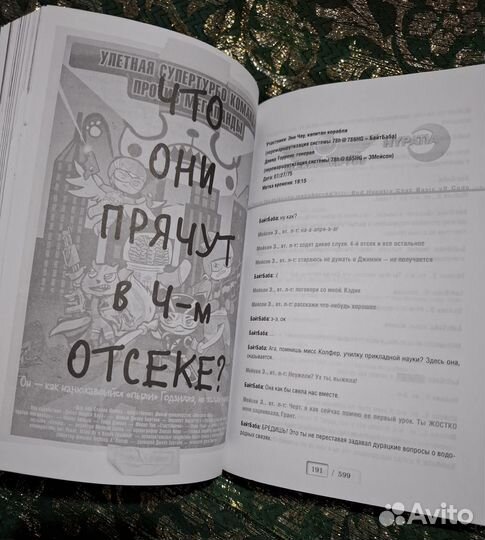 УЛЕТНАЯ СУПЕРТУРБО КОМАН
ПРО МЕГ НДЫ
ЧТО
ОНИ
ПРЯЧУТ
В 4-М
ОТСЕКЕ?
Он — как нанюхавшийся «пыли» Годзилла, но
Участники: Энн Чау, капитан корабля
(перемаршрутизация системы 78h@786HG – БайтБаба)
Дэвид Торренс, генерал
(перемаршрутизация системы 78h@665HG – ЭМейсон)
Дата: 07/27/75
Метка времени: 19:15
БайтБаба: ну как?
Мейсон Э., вт. л-т: на-а-апря-э-аг
Мейсон Э., вт. л-т: ходят дикие слухи. 4-й отсек и все остальное
Мейсон Э., вт. л-т: стараюсь не думать о Джимми — не получается
БайтБаба: :(
Мейсон Э., вт. л-т: поговори со мной, Кэдис
Мейсон Э., вт. л-т: расскажи что-нибудь хорошее
БайтБаба: э-э, ок
БайтБаба: ...
БайтБаба: Ага, помнишь мисс Колфер, училку прикладной науки? Здесь она,
оказывается.
Мейсон Э., вт. л-т: Неужели? Ух ты, выжила!
БайтБаба: Она как бы свела нас вместе.
Мейсон Э., вт. л-т: Черт, я как сейчас помню ее первый урок. Ты ЖОСТКО
меня зацепивала, Грант.
БайтБаба: БРЕДИШЬ! Это ты не переставая задавал дурацкие вопросы о водо-
родных связях.
191 / 599
Avito